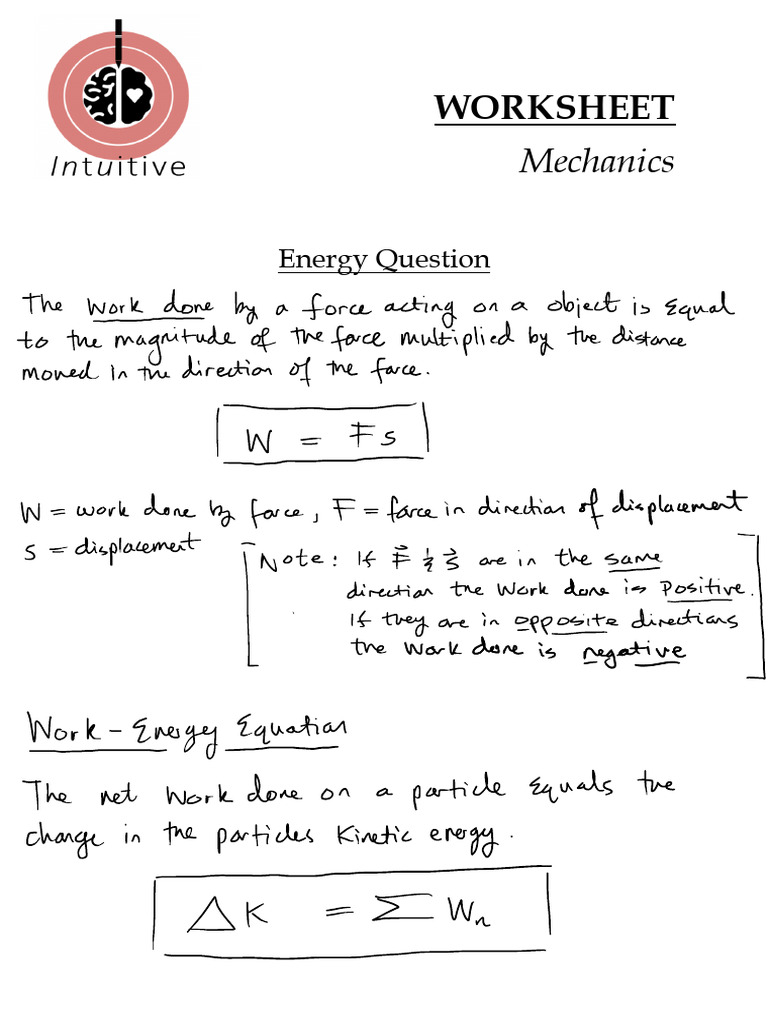 Intuitive
WORKSHEET
Mechanics
Energy Question
The work done by a force acting on a object is equal
to the magnitude of the force multiplied by the distance
moved in the direction of the force.
W = Fs
W = work done by force, F = force in direction of displacement
s = displacement
[Note: If F⃗ & s⃗ are in the same
direction the work done is positive.
If they are in opposite directions
the work done is negative]
Work - Energy Equation
The net work done on a particle equals the
change in the particles kinetic energy.
ΔK = ΣWn